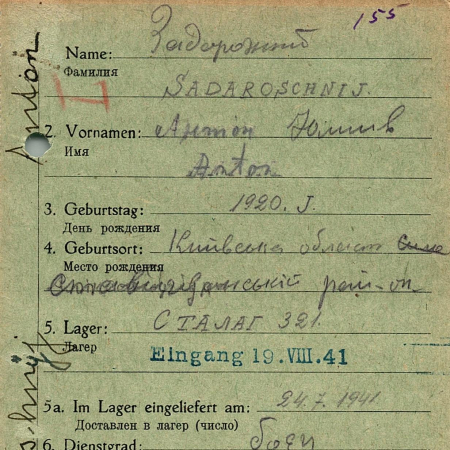 155
Name: Задорожний
Фамилия
SADAROSCHNIJ.
2. Vornamen: Антон
Имя
Anton
3. Geburtstag: 1920. J.
День рождения
4. Geburtsort: Київська область
Место рождения
рай-он
5. Lager: СТАЛАГ 321.
Лагер
Eingang 19.VIII.41
5a. Im Lager eingeliefert am: 24.7.1941
Доставлен в лагер (число)
6. Dienstgrad: боец
Anton